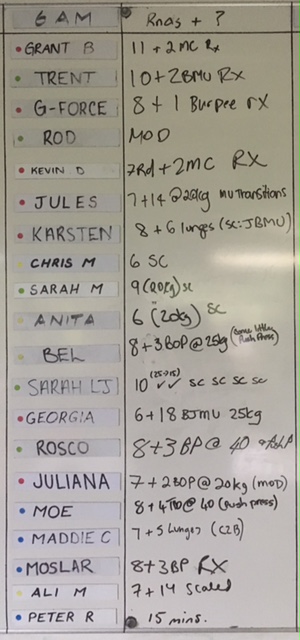 6 AM Rnds + ?
GRANT B 11 + 2 MC Rx
TRENT 10 + 2BMU Rx
G-FORCE 8 + 1 Burpee rx
ROD MOD
KEVIN D 7Rd + 2MC RX
JULES 7+14 @ kg mu Transitions
KARSTEN 8 + 6 lunges (sc: JBMU)
CHRIS M 6 SC
SARAH M 9 (20kg) sc
ANITA 6 (20kg) SC
BEL 8+3BOP @ 25kg (Some Push Press)
SARAH LJ 10 (25→15) ✓✓ sc sc sc sc
GEORGIA 6+18 BJMU 25kg
ROSCO 8+3 BP @ 40
JULIANA 7 + 2BOP @ 20kg (MOD)
MOE 8 + @ 40 (push press)
MADDIE C 7 + 5 Lunges (C2B)
MOSLAR 8+3BP RX
ALI M 7 + 14 Scaled
PETER R 15 mins.